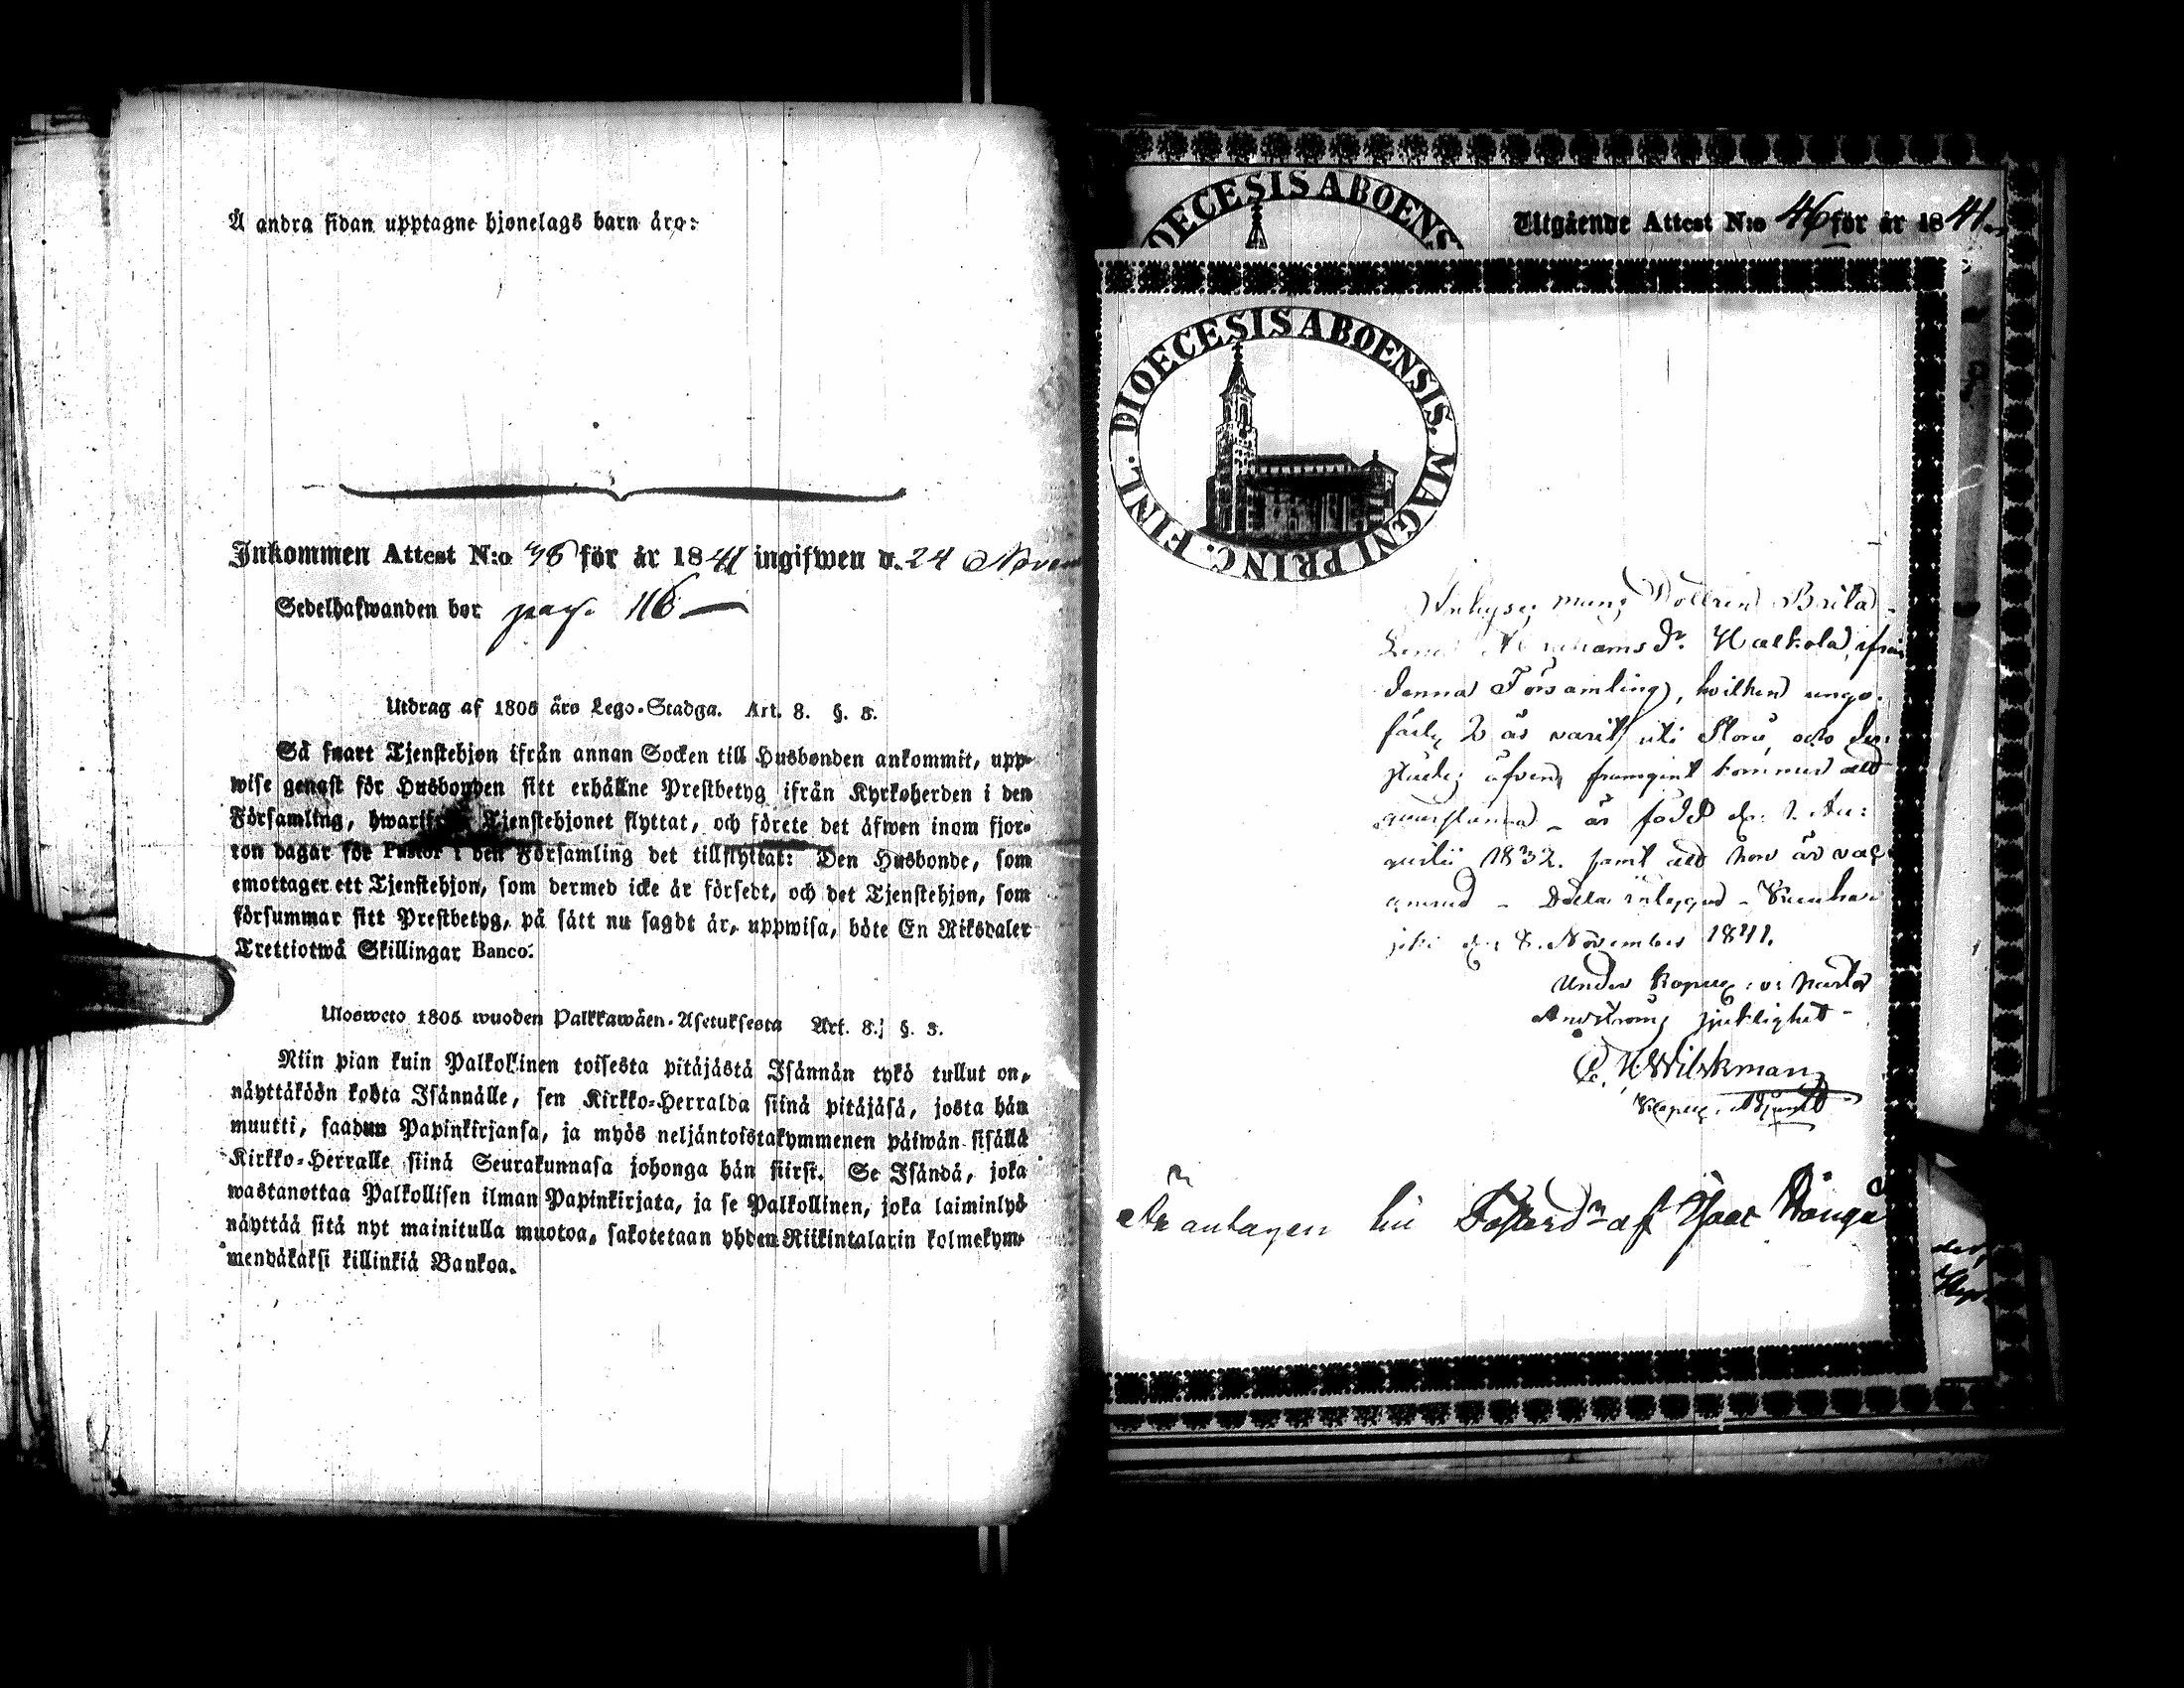 Å andra sidan upptagne hjonelags barn äro:
Inkommen Attest N:o 46 för år 1841 ingifwen d. 24 Novem
Sedelhafwanden bor pag. 116
Utdrag af 1805 års Lego-Stadga. Art. 8. §. 3.
Så snart Tjenstehjon ifrån annan Socken till Husbonden ankommit, upp-
wise genast för Husbonden sitt erhållne Prestbetyg ifrån Kyrkoherden i den
Församling, hwarifrån Tjenstehjonet flyttat, och förete det äfwen inom fjor-
ton dagar för Pastor i den Församling det tillflyttat: Den Husbonde, som
emottager ett Tjenstehjon, som dermed icke är försedt, och det Tjenstehjon, som
försummar sitt Prestbetyg, på sätt nu sagdt är, uppwisa, böte En Riksdaler
Trettiotwå Skillingar Banco.
Ulosweto 1805 wuoden Palkkawäen-Asetuksesta Art. 8. §. 3.
Niin pian kuin Palkollinen toisesta pitäjästä Isännän tykö tullut on,
näyttäköön kohta Isännälle, sen Kirkko-Herralda siinä pitäjäsä, josta hän
muutti, saadun Papinkirjansa, ja myös neljäntoistakymmenen päiwän sisällä
Kirkko-Herralle siinä Seurakunnasa johonga hän siirsi. Se Isändä, joka
wastanottaa Palkollisen ilman Papinkirjata, ja se Palkollinen, joka laiminlyö
näyttää sitä nyt mainitulla muotoa, sakotetaan yhden Riikintalarin kolmekym-
mendäkaksi killinkiä Bankoa.
DIOECESIS ABOENS
Utgående Attest N:o 46 för år 1841.
DIOECESIS ABOENSIS. MAGNI PRINC. FINL.
Dottren Brita
Abrahams dr. ifrån
denna Församling, hvilken unge-
fär 2 år varit uti Storå, och der-
städes äfven framgent kommer att
är född d. 1. Au-
gusti 1832. samt att hon är vac-
cinerad
d. 8. November 1841.
Under
C. H. Wilskman
Adjunkt
Är antagen till af Isaac Rånga